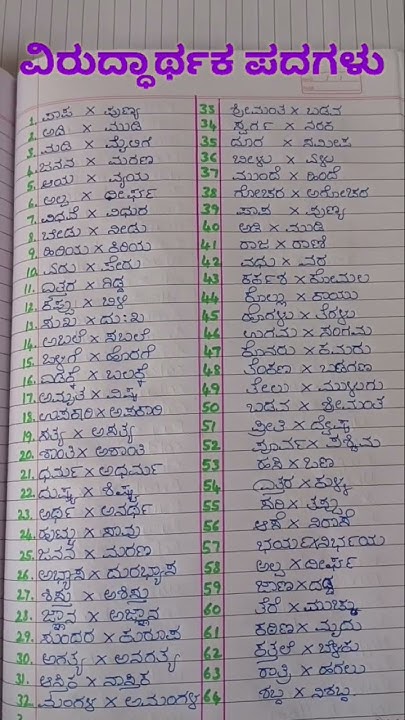 ವಿರುದ್ಧಾರ್ಥಕ ಪದಗಳು
1. ಪಾಪ × ಪುಣ್ಯ
2. ಅಡಿ × ಮುಡಿ
3. ಮಡಿ × ಮೈಲಿಗೆ
4. ಜನನ × ಮರಣ
5. ಆಯ × ವ್ಯಯ
6. ಅಲ್ಪ × ದೀರ್ಘ
7. ವಿಧವೆ × ವಿಧುರ
8. ಬೇಡು × ನೀಡು
9. ಹಿರಿಯ × ಕಿರಿಯ
10. ಏರು × ಪೇರು
11. ಎತ್ತರ × ಗಿಡ್ಡ
12. ಕಪ್ಪು × ಬಿಳಿ
13. ಸುಖ × ದುಃಖ
14. ಅಬಲೆ × ಸಬಲೆ
15. ಒಳಗೆ × ಹೊರಗೆ
16. ಎಡಕ್ಕೆ × ಬಲಕ್ಕೆ
17. ಅಮೃತ × ವಿಷ
18. ಉಪಕಾರಿ × ಅಪಕಾರಿ
19. ಸತ್ಯ × ಅಸತ್ಯ
20. ಶಾಂತಿ × ಅಶಾಂತಿ
21. ಧರ್ಮ × ಅಧರ್ಮ
22. ದುಷ್ಟ × ಶಿಷ್ಟ
23. ಅರ್ಥ × ಅನರ್ಥ
24. ಹುಟ್ಟು × ಸಾವು
25. ಜನನ × ಮರಣ
26. ಅಭ್ಯಾಸ × ದುರಭ್ಯಾಸ
27. ಶಿಸ್ತು × ಅಶಿಸ್ತು
28. ಜ್ಞಾನ × ಅಜ್ಞಾನ
29. ಸುಂದರ × ಕುರೂಪ
30. ಅಗತ್ಯ × ಅನಗತ್ಯ
31. ಆಸ್ತಿಕ × ನಾಸ್ತಿಕ
32. ಮಂಗಳ × ಅಮಂಗಳ
33 ಶ್ರೀಮಂತ × ಬಡವ
34 ಸ್ವರ್ಗ × ನರಕ
35 ದೂರ × ಸಮೀಪ
36 ಬೀಳು × ಏಳು
37 ಮುಂದೆ × ಹಿಂದೆ
38 ಗೋಚರ × ಅಗೋಚರ
39 ಪಾಪ × ಪುಣ್ಯ
40 ಅಡಿ × ಮುಡಿ
41 ರಾಜ × ರಾಣಿ
42 ವಧು × ವರ
43 ಕರ್ಕಶ × ಕೋಮಲ
44 ಕೊಲ್ಲು × ಕಾಯು
45 ಹೊಗಳು × ತೆಗಳು
46 ಉಗಮ × ಸಂಗಮ
47 ಕೊನರು × ಕಮರು
48 ತೆಂಕಣ × ಬಡಗಣ
49 ತೇಲು × ಮುಳುಗು
50 ಬಡವ × ಶ್ರೀಮಂತ
51 ಪ್ರೀತಿ × ದ್ವೇಷ
52 ಪೂರ್ವ × ಪಶ್ಚಿಮ
53 ಹಸಿ × ಒಣ
54 ಎತ್ತರ × ಕುಳ್ಳ
55 ಸರಿ × ತಪ್ಪು
56 ಆಸೆ × ನಿರಾಸೆ
57 ಭಯ × ನಿರ್ಭಯ
58 ಅಲ್ಪ × ದೀರ್ಘ
59 ಜಾಣ × ದಡ್ಡ
60 ತೆರೆ × ಮುಚ್ಚು
61 ಕಠಿಣ × ಮೃದು
62 ಕತ್ತಲೆ × ಬೆಳಕು
63 ರಾತ್ರಿ × ಹಗಲು
64 ಶಬ್ದ × ನಿಶಬ್ದ